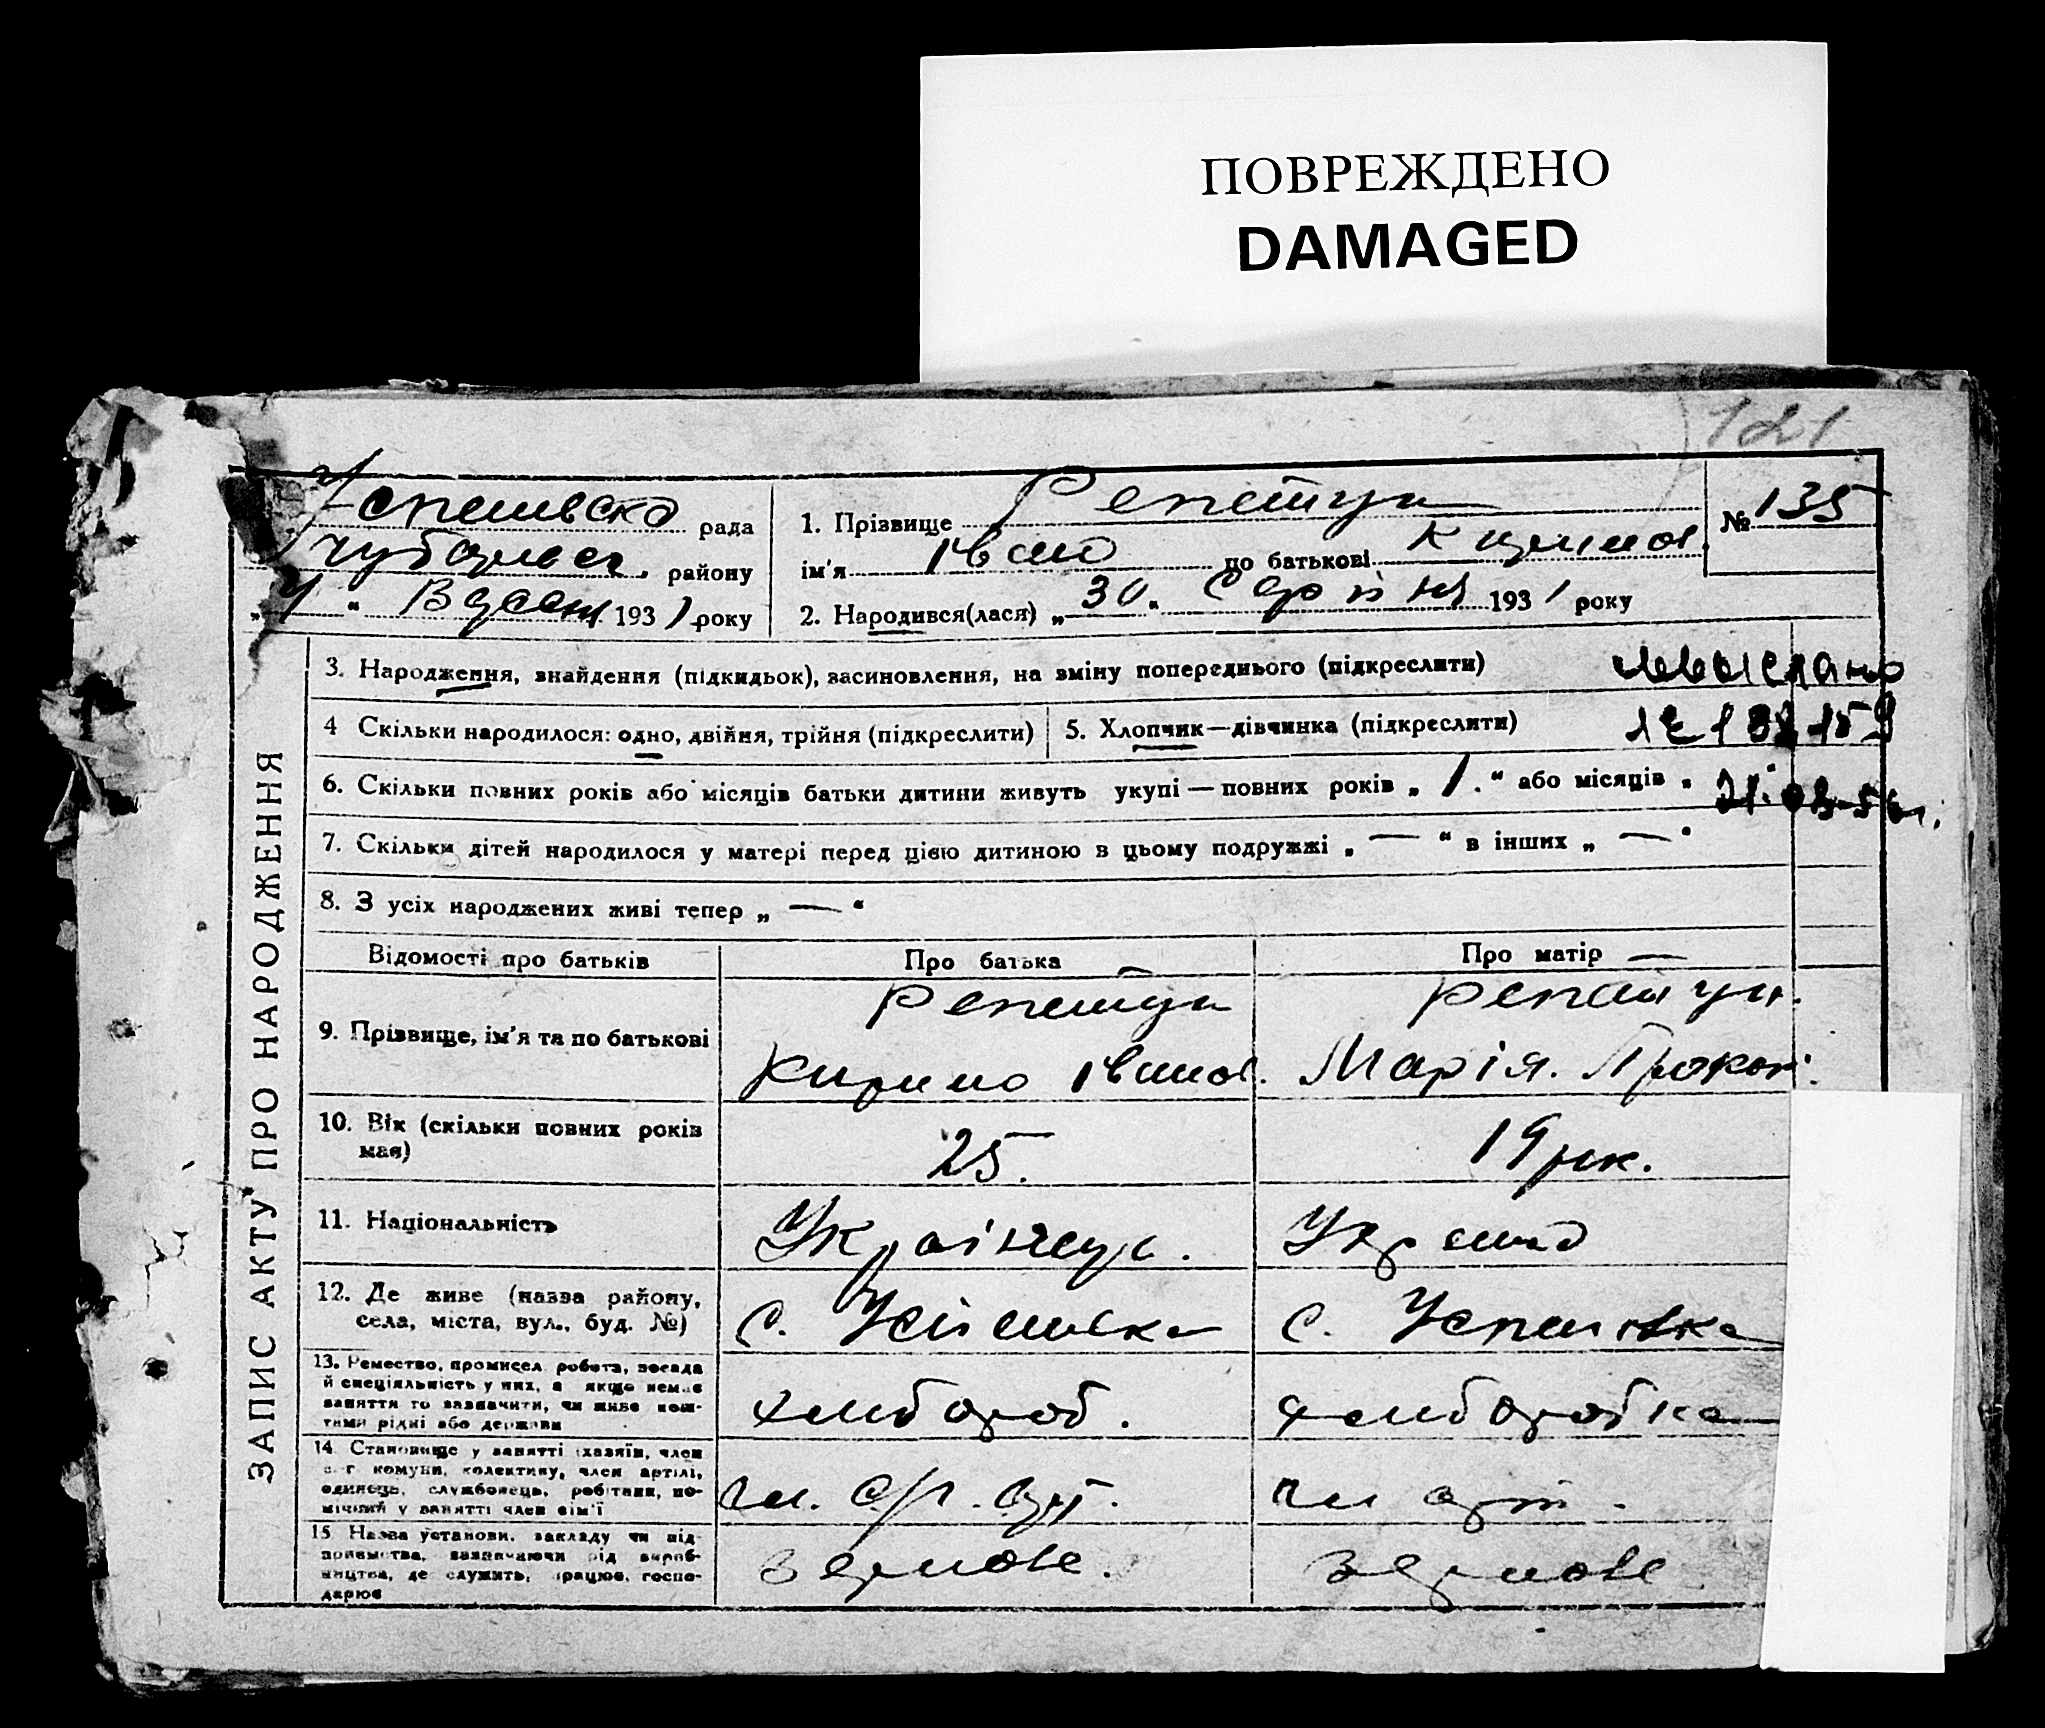 ПОВРЕЖДЕНО
DAMAGED
121
рада
району
„ “ 1931 року
1. Прізвище Репетун
ім'я Іван по батькові Кирилов.
2. Народився(лася) „30“ Серпня 1931 року
№ 135
ЗАПИС АКТУ ПРО НАРОДЖЕННЯ
3. Народження, знайдення (підкидьок), засиновлення, на зміну попереднього (підкреслити)
4 Скільки народилося: одно, двійня, трійня (підкреслити)
5. Хлопчик—дівчинка (підкреслити)
6. Скільки повних років або місяців батьки дитини живуть укупі — повних років „ 1. “ або місяців „
7. Скільки дітей народилося у матері перед цією дитиною в цьому подружжі „ — “ в інших „ — “
8. З усіх народжених живі тепер „ — “
Відомості про батьків
Про батька —
Про матір —
9. Прізвище, ім'я та по батькові
Репетун
Кирило Іванов.
Репетун.
Марія. Прокоп.
10. Вік (скільки повних років має)
25.
19 рк.
11. Національність
Українець.
12. Де живе (назва району,
села, міста, вул., буд. №)
с. Успенівка
с. Успенівка
13. Ремество, промисел робота, посада
й спеціяльність у них, а якщо немає
заняття то зазначити, чи живе кош-
тами рідні або держави
хлібороб.
хлібробка
14. Становище у занятті (хазяїн, член
с.-г комуни, колективу, член артілі,
одинець, службовець, робітник, по-
мічний у занятті член сім'ї
чл. с/г. арт.
чл арт.
15. Назва установи, закладу чи під-
приємства, зазначаючи рід вироб-
ництва, де служить, працює, госпо-
дарює
зернове.
зернове